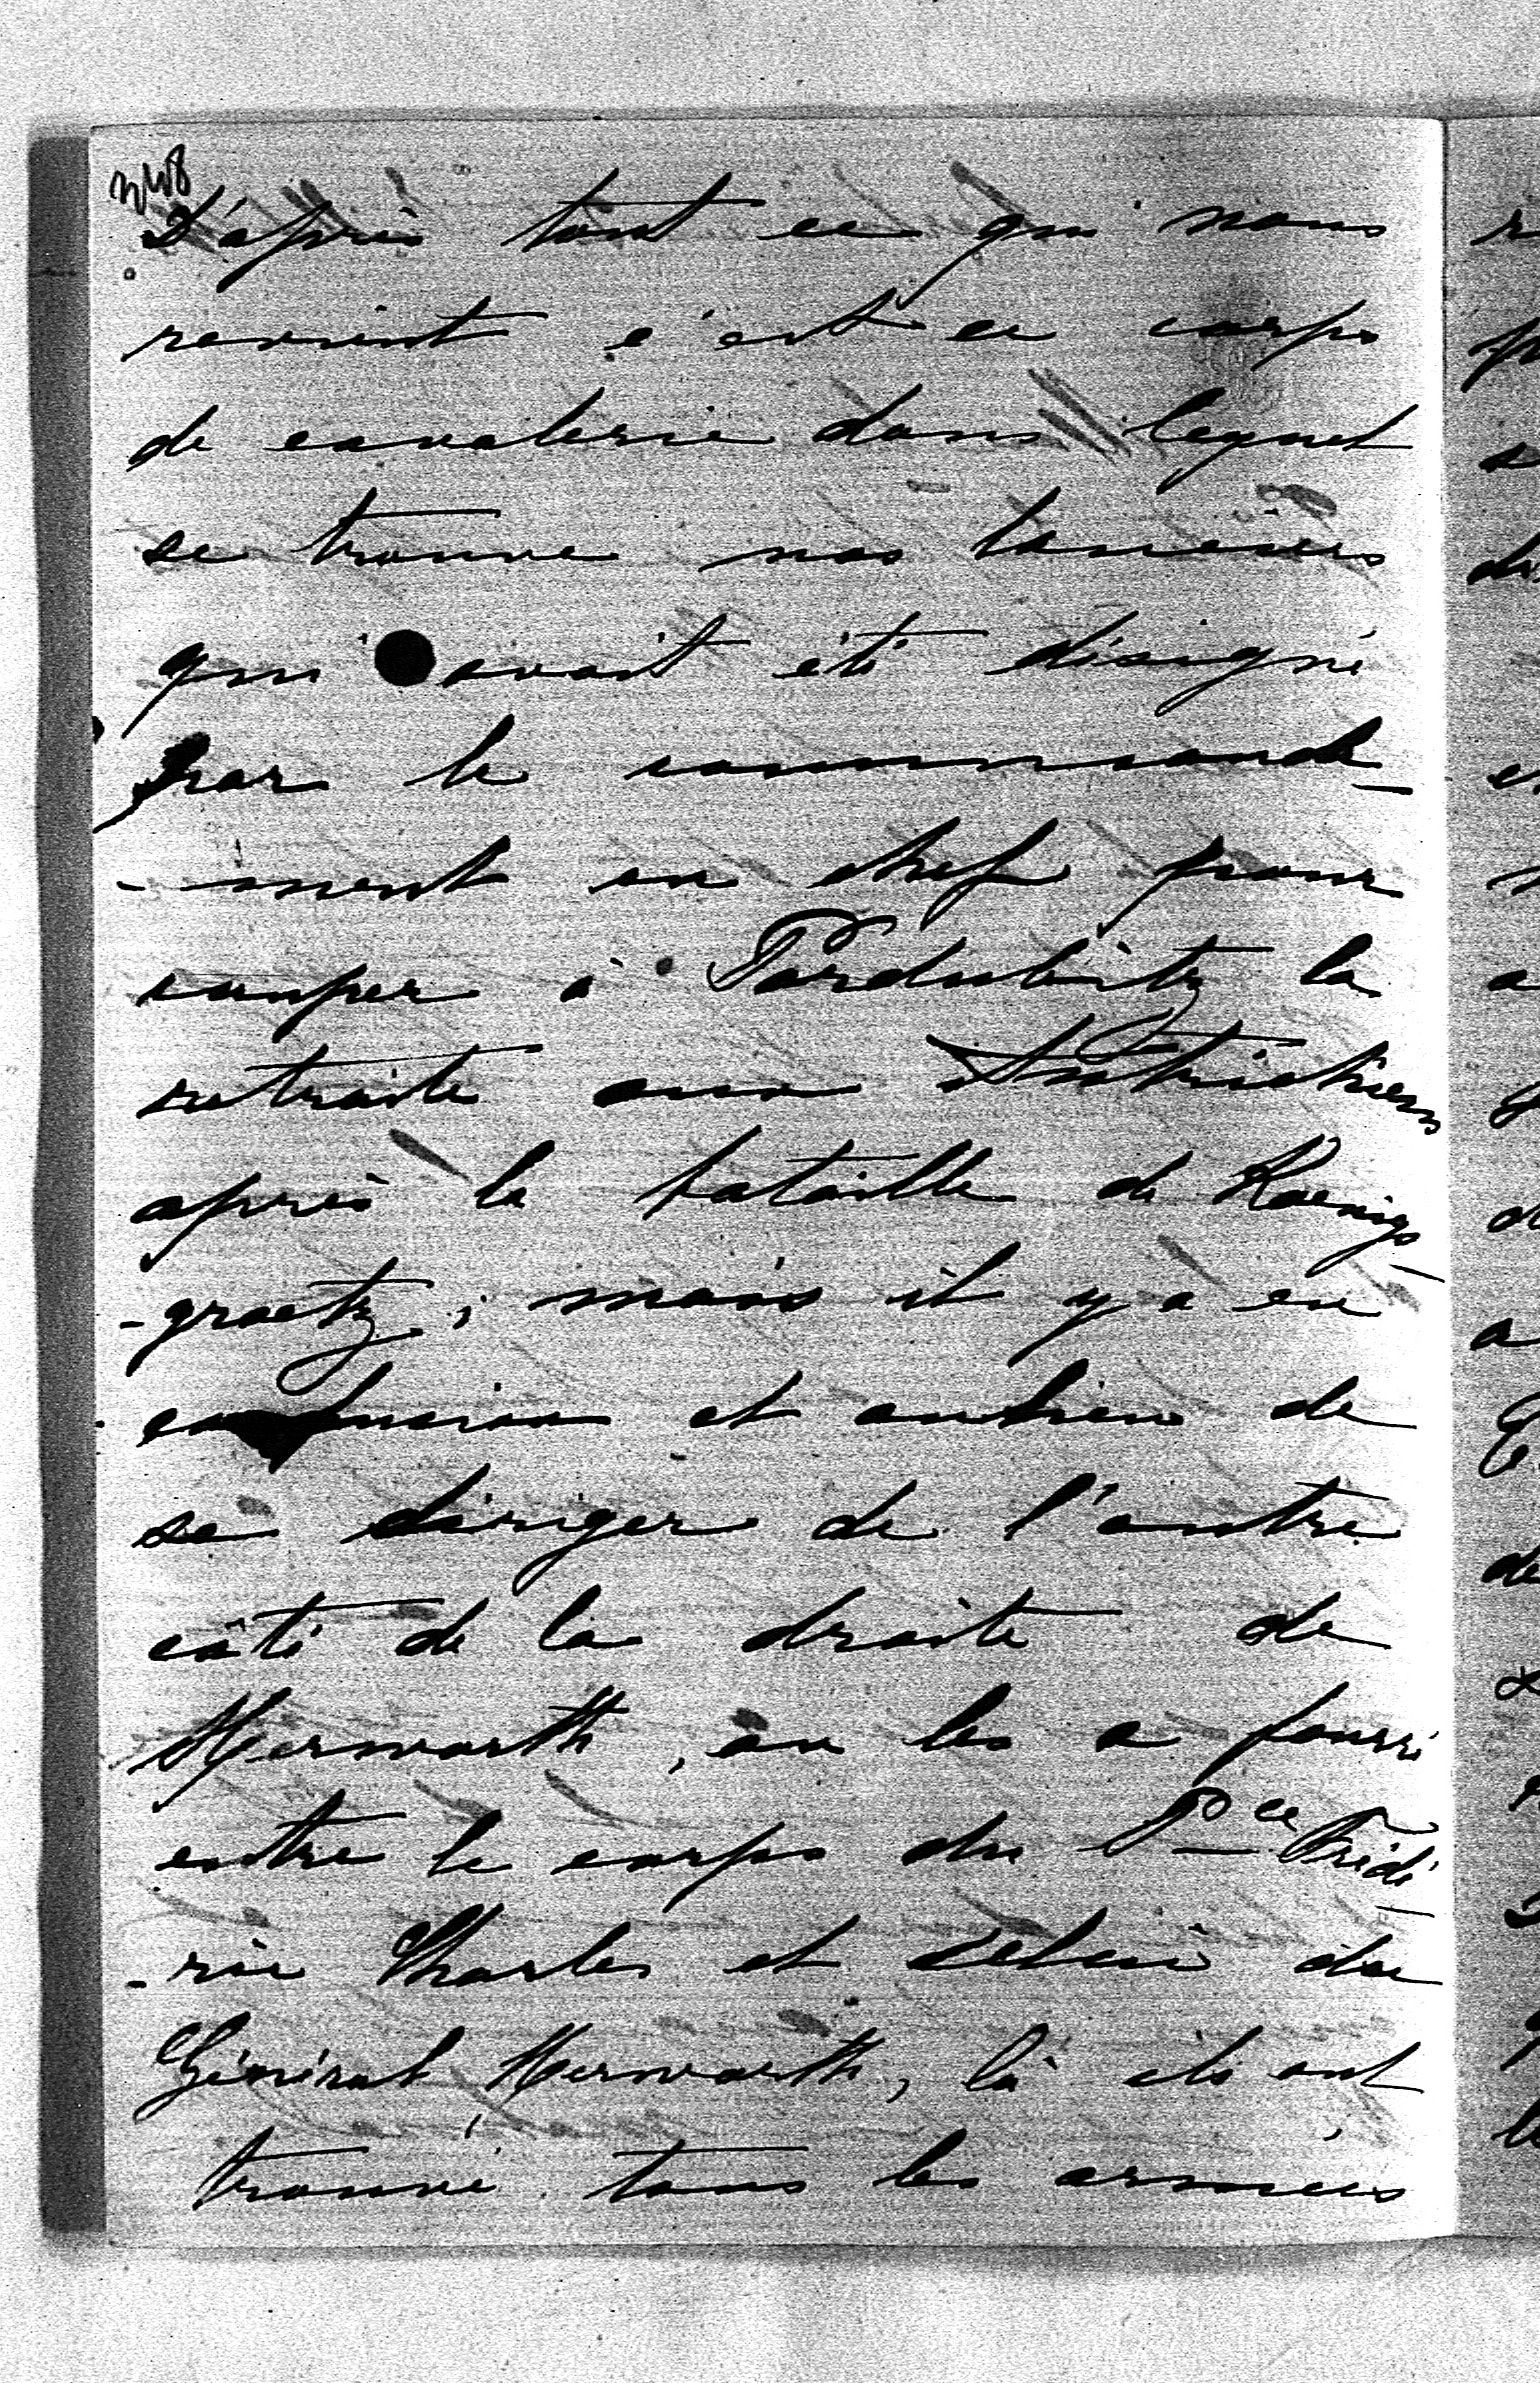 248
D'après tout ce qui nous
revient c'est ce corps
de cavalerie dans lequel
se trouve nos lanciers
qui avait été désigné
par le commande-
-ment en chef pour
couper à Pardubitz la
retraite aux Autrichiens
après la bataille de Koenigs-
-graetz; mais il y a eu
confusion et au lieu de
se diriger de l'autre
côté de la droite de
Herwarth, on les a fourré
entre le corps du Pce Frédé-
-ric Charles et celui du
Général Herwarth, là ils ont
trouvé tous les armées